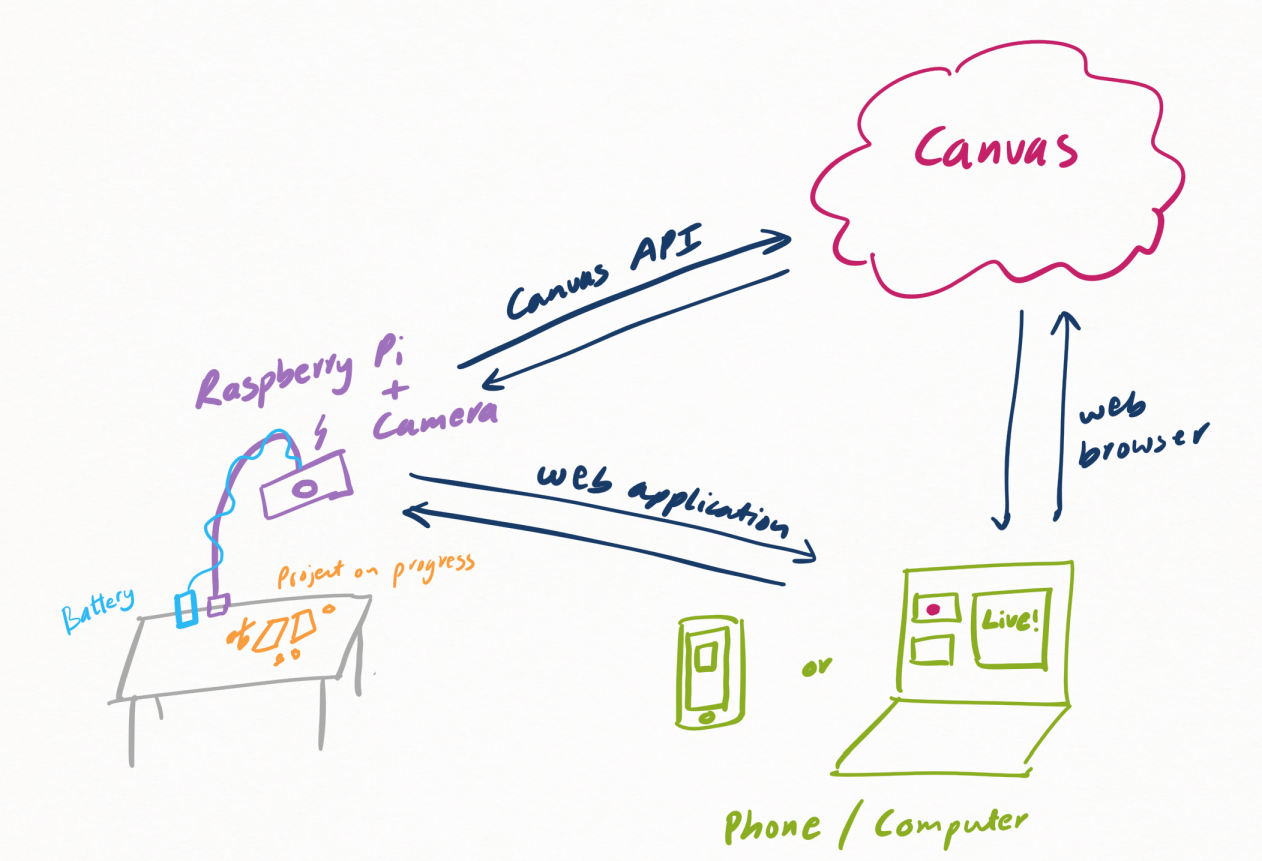 Canvas
Canvas API
Raspberry Pi
+
Camera
web
browser
web application
Project on progress
Battery
Live!
or
Phone / Computer